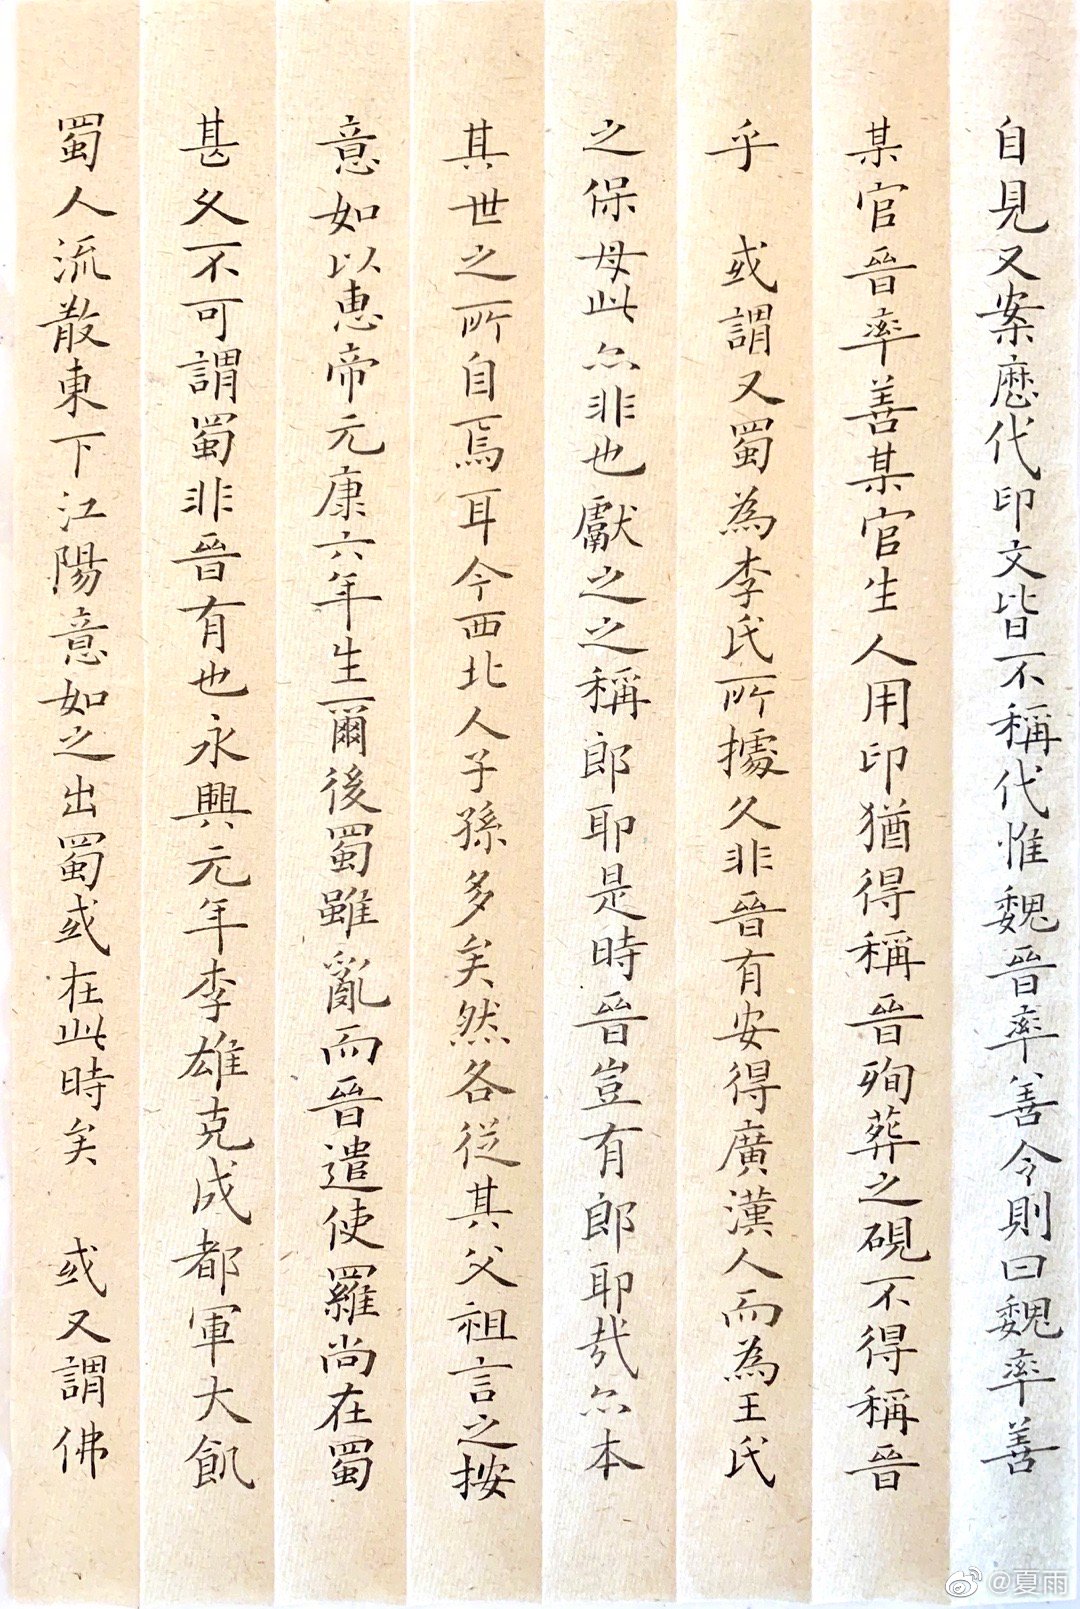 自見又案歷代印文皆不稱代惟魏晉率善令則曰魏率善
某官晉率善某官生人用印猶得稱晉殉葬之硯不得稱晉
乎 或謂又蜀為李氏所據久非晉有安得廣漢人而為王氏
之保母此亦非也獻之之稱郎耶是時晉豈有郎耶哉亦本
其世之所自焉耳今西北人子孫多矣然各從其父祖言之按
意如以惠帝元康六年生爾後蜀雖亂而晉遣使羅尚在蜀
甚久不可謂蜀非晉有也永興元年李雄克成都軍大飢
蜀人流散東下江陽意如之出蜀或在此時矣 或又謂佛
@夏雨